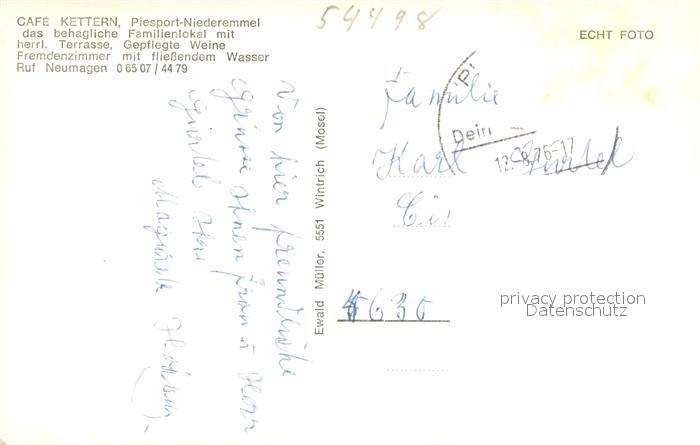 CAFÉ KETTERN, Piesport-Niederemmel
das behagliche Familienlokal mit
herrl. Terrasse, Gepflegte Weine
Fremdenzimmer mit fließendem Wasser
Ruf Neumagen 0 65 07 / 44 79
54498
ECHT FOTO
Von hier freundliche
Grüsse Ihnen Frau u Herr
Ihre
Ewald Müller, 5551 Wintrich (Mosel)
Familie
Karl
Dein
12.-8.76-17
privacy protection
Datenschutz